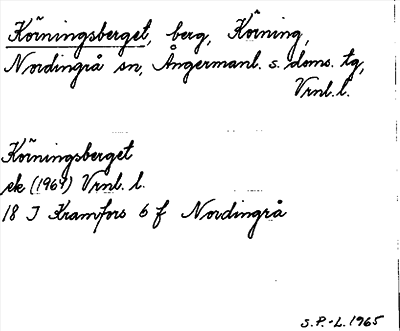 Körningsberget, berg, Körning,
Nordingrå sn, Ångermanl. s. doms. tg,
Vrnl. l.
Körningsberget
ek (1964) Vrnl. l.
18 J Kramfors 6 f Nordingrå
S.P.-L. 1965